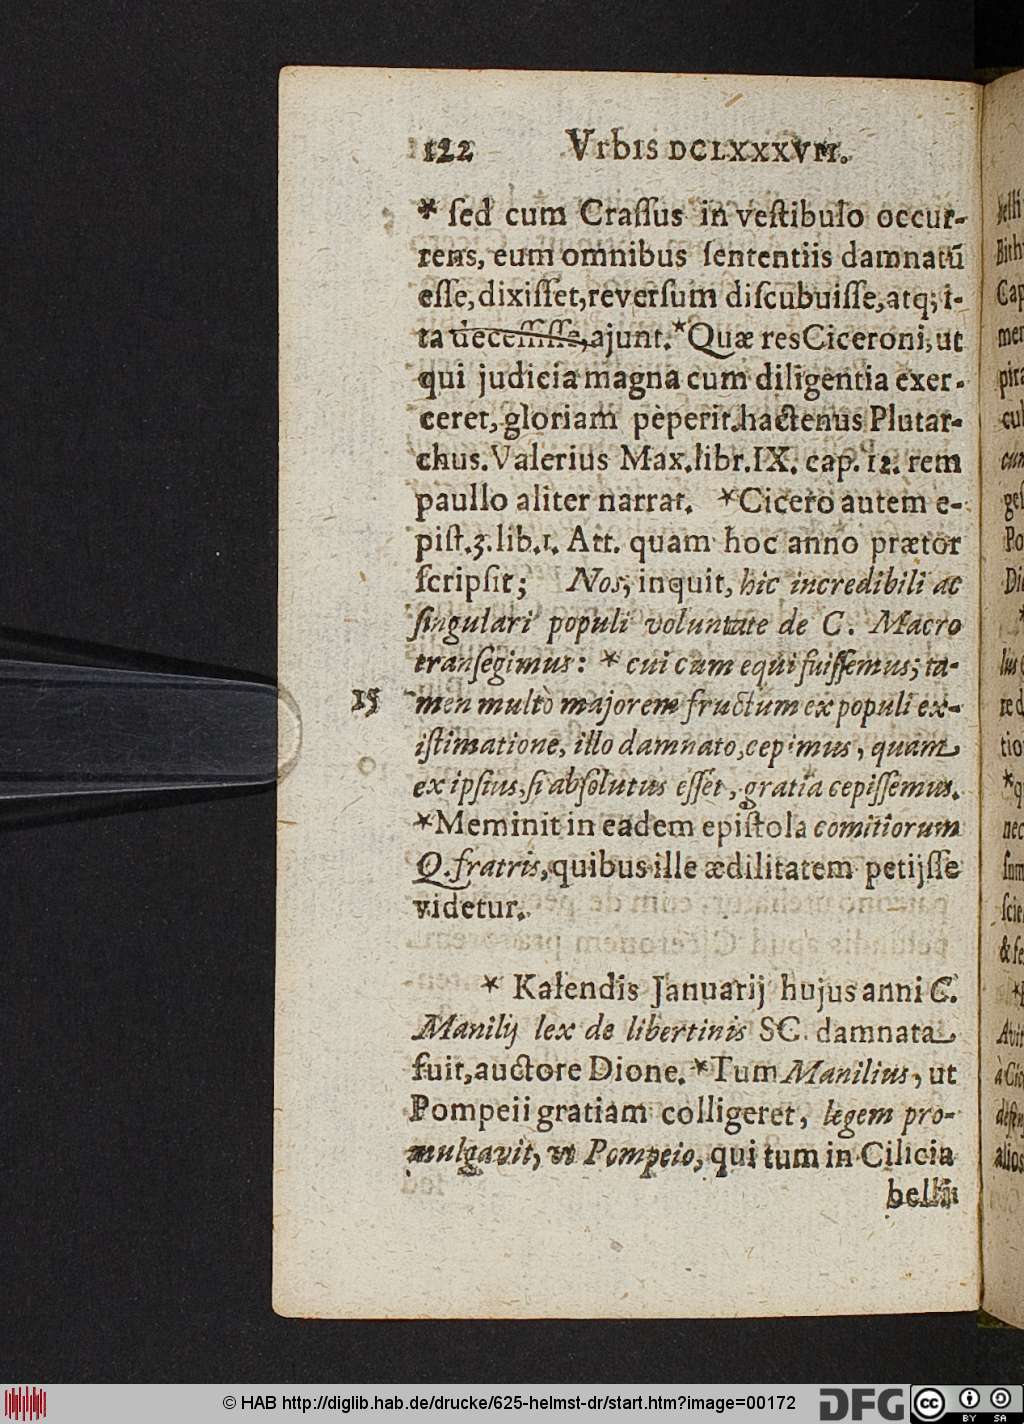 122 Vrbis DCLXXXVII.
* ſed cum Craſſus in veſtibulo occur-
rens, eum omnibus ſententiis damnatũ
eſſe, dixiſſet, reverſum diſcubuiſſe, atq; i-
ta deceſſiſſe, ajunt. * Quæ res Ciceroni, ut
qui judicia magna cum diligentia exer-
ceret, gloriam pèperit. hactenus Plutar-
chus. Valerius Max. libr. IX. cap. 12. rem
paullo aliter narrat. * Cicero autem e-
piſt. 3. lib. 1. Att. quam hoc anno prætor
ſcripſit; Nos, inquit, hic incredibili ac
ſingulari populi voluntate de C. Macro
tranſegimus: * cui cum equi fuiſſemus; ta-
15 men multò majorem fructum ex populi ex-
iſtimatione, illo damnato, cepimus, quam
ex ipſius, ſi abſolutus eſſet, gratia cepiſſemus.
* Meminit in eadem epiſtola comitiorum
Q. fratris, quibus ille ædilitatem petijſſe
videtur.
* Kalendis Januarij hujus anni C.
Manilij lex de libertinis SC. damnata
fuit, auctore Dione. * Tum Manilius, ut
Pompeii gratiam colligeret, legem pro-
mulgavit, vt Pompeio, qui tum in Cilicia
belli
© HAB http://diglib.hab.de/drucke/625-helmst-dr/start.htm?image=00172
DFG
cc
BY SA